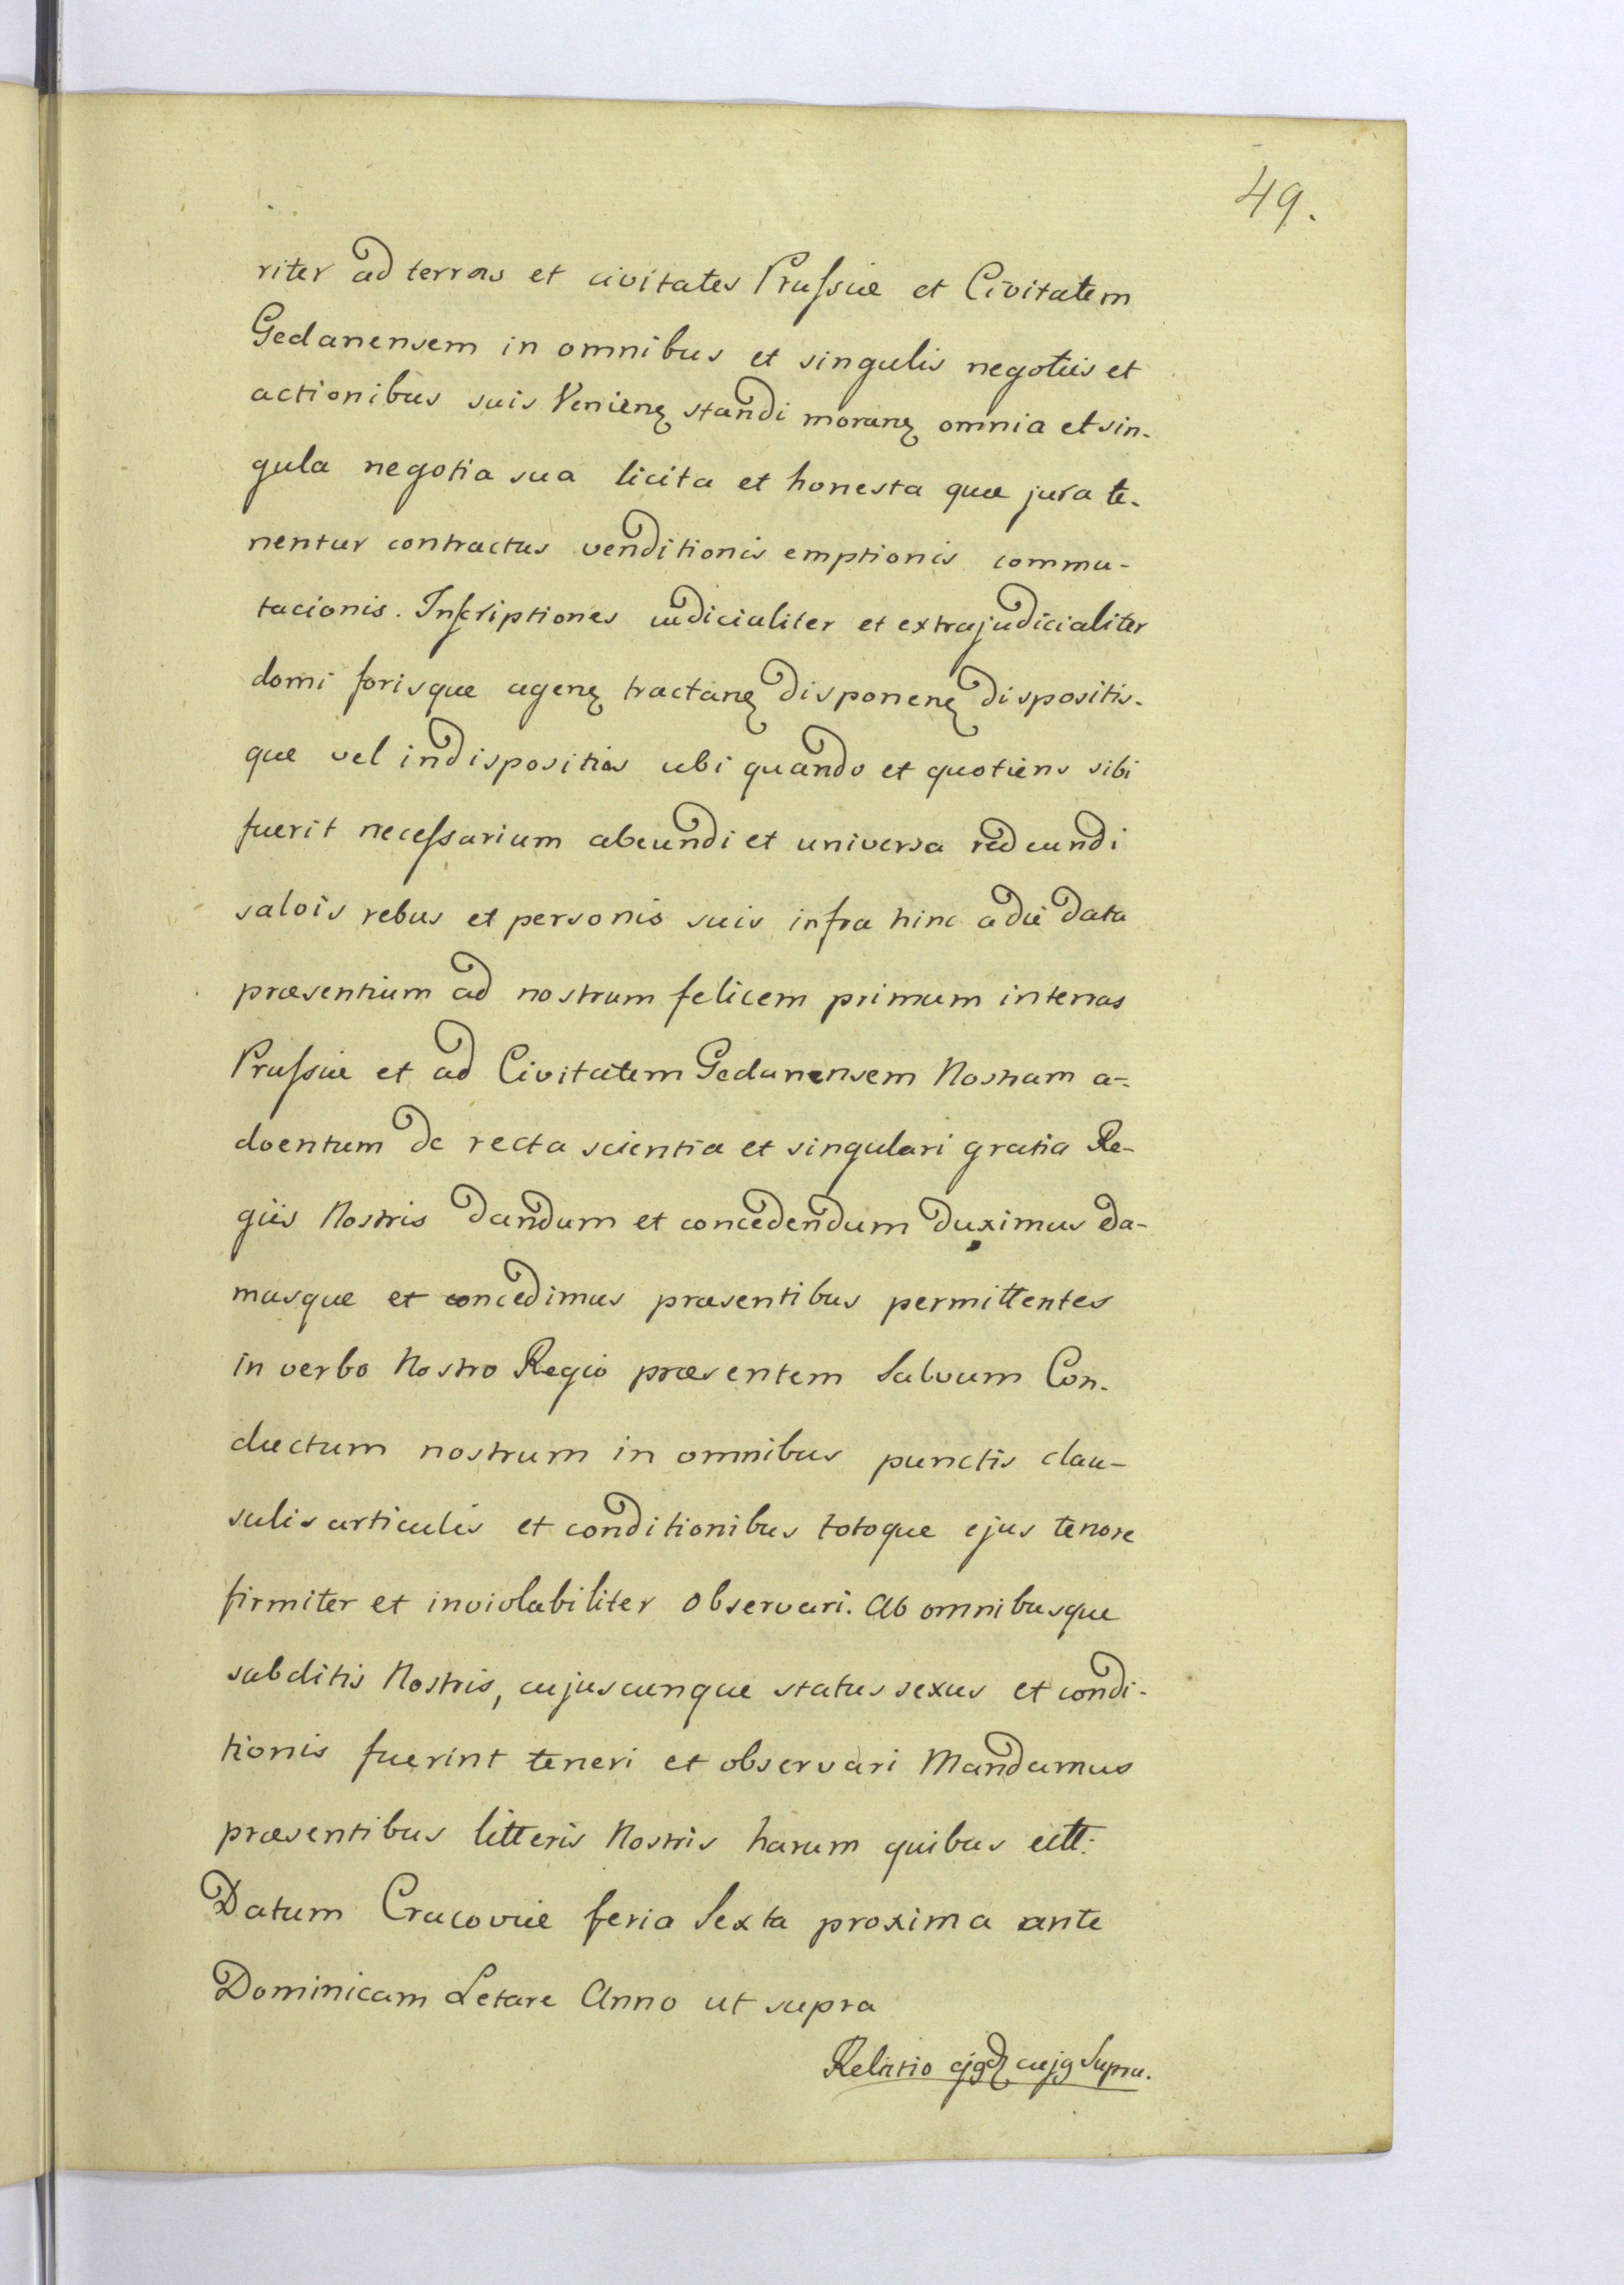 49.
riter ad terras et civitates Prussiæ et Civitatem
Gedanensem in omnibus et singulis negotiis et
actionibus suis Venienꝫ standi moranꝫ omnia et sin-
gula negotia sua licita et honesta quæ jura te-
nentur contractus venditionis emptionis commu-
tacionis. Inscriptiones iudicialiter et extrajudicialiter
domi forisque agenꝫ tractanꝫ disponenꝫ dispositis-
que vel indispositis ubi quando et quotiens sibi
fuerit necessarium abeundi et universa redeundi
salvis rebus et personis suis infra hinc a die data
præsentium ad nostrum felicem primum in terras
Prussiæ et ad Civitatem Gedanensem Nostram a-
dventum de recta scientia et singulari gratia Re-
giis Nostris dandum et concedendum duximus da-
musque et concedimus præsentibus permittentes
in verbo Nostro Regio præsentem Salvum Con-
ductum nostrum in omnibus punctis clau-
sulis articulis et conditionibus totoque ejus tenore
firmiter et inviolabiliter observari. Ab omnibusque
subditis Nostris, cujuscunque status sexus et condi-
tionis fuerint teneri et observari Mandamus
præsentibus litteris Nostris harum quibus
Datum Cracoviæ feria Sexta proxima ante
Dominicam Letare Anno ut supra
Relatio ejꝰdꝫ cujꝰ Supra.